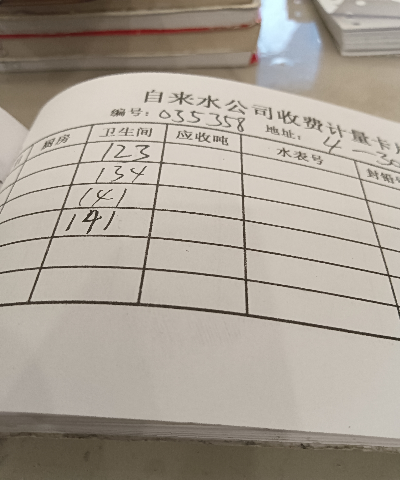 自来水公司收费计量卡片
编号: 035358 地址: 4-30
厨房 卫生间 应收吨 水表号 封铅号
123
134
141
141